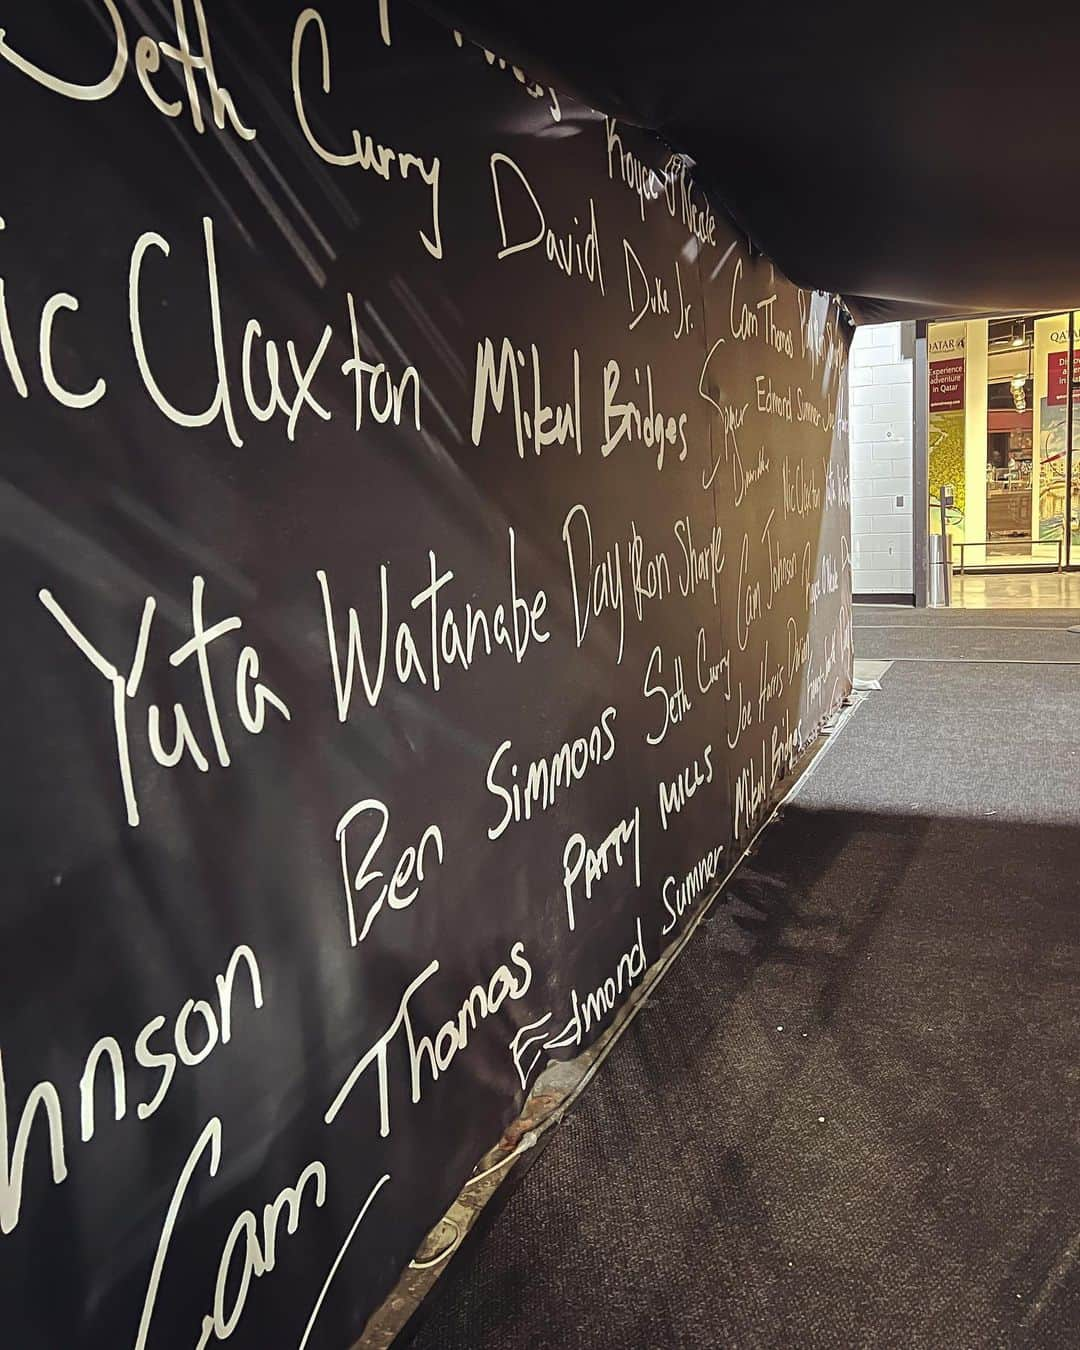 Seth Curry
David Duke Jr.
Royce O'Neale
Cam Thomas
ic Claxton
Mikal Bridges
Edmond Sumner
Nic Claxton
Yuta Watanabe
Day'Ron Sharpe
Cam Johnson
Royce O'Neale
Ben Simmons
Seth Curry
Joe Harris
hnson
Cam Thomas
PATTY MILLS
Mikal Bridges
Edmond Sumner
Cam
QATAR
Experience
adventure
in Qatar